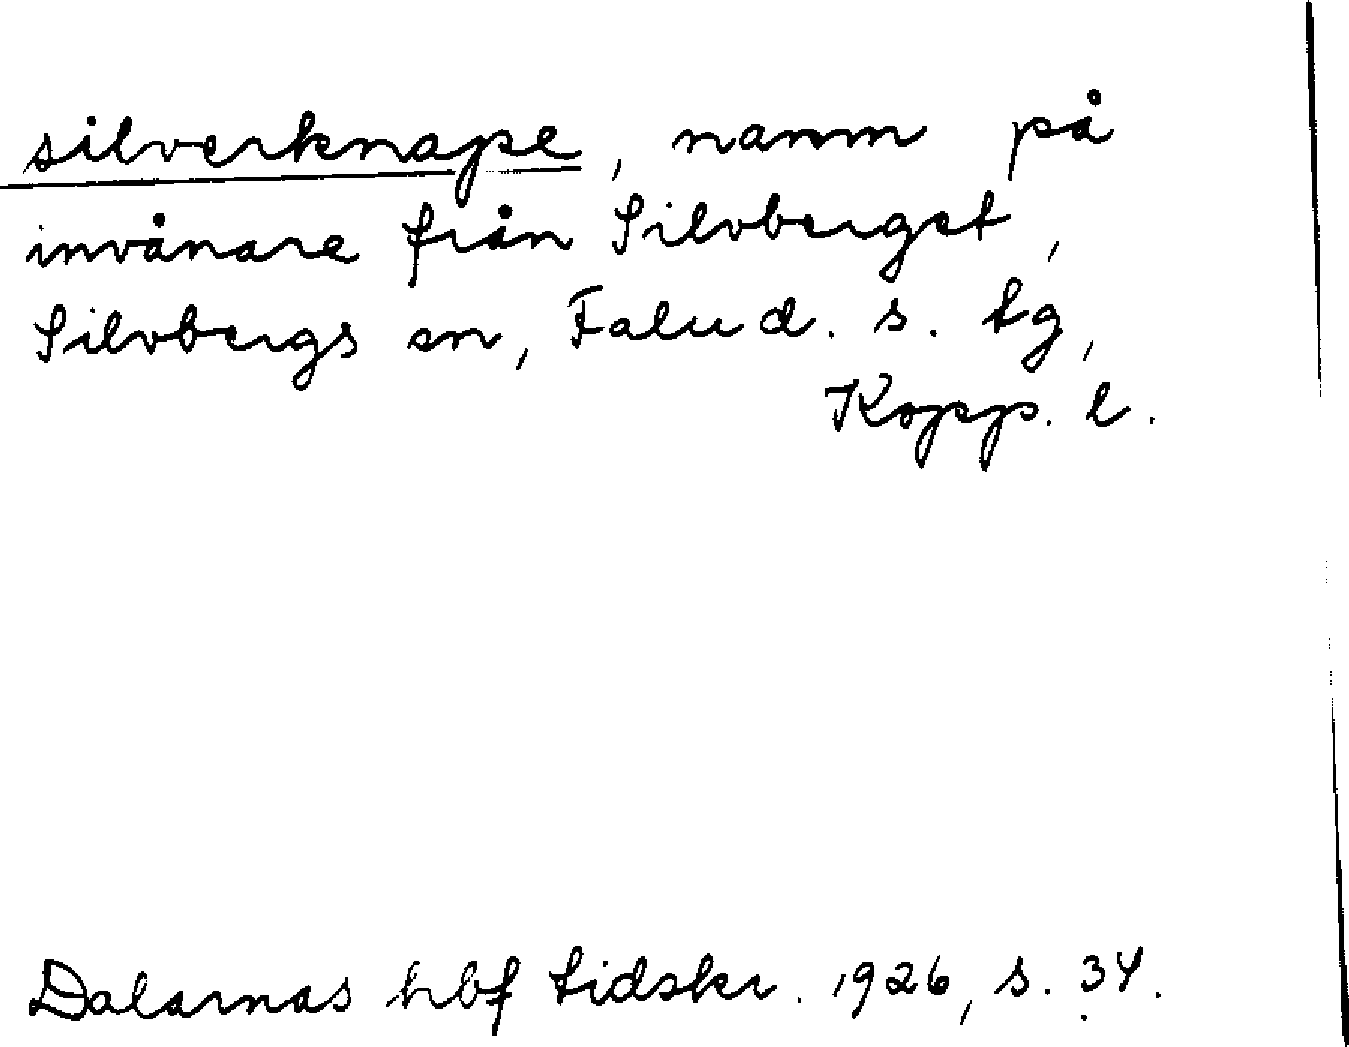 silverknape, namn på
invånare från Silvberget,
Silvbergs sn, Falu d. s. tg,
Kopp. l.
Dalarnas hbf tidskr. 1926, s. 34.